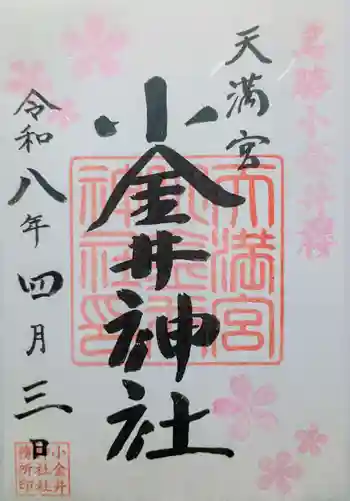 名勝小金井桜
天満宮
小金井神社
令和八年四月三日
天満宮
小金井
神社印
小金井
神社社
務所印